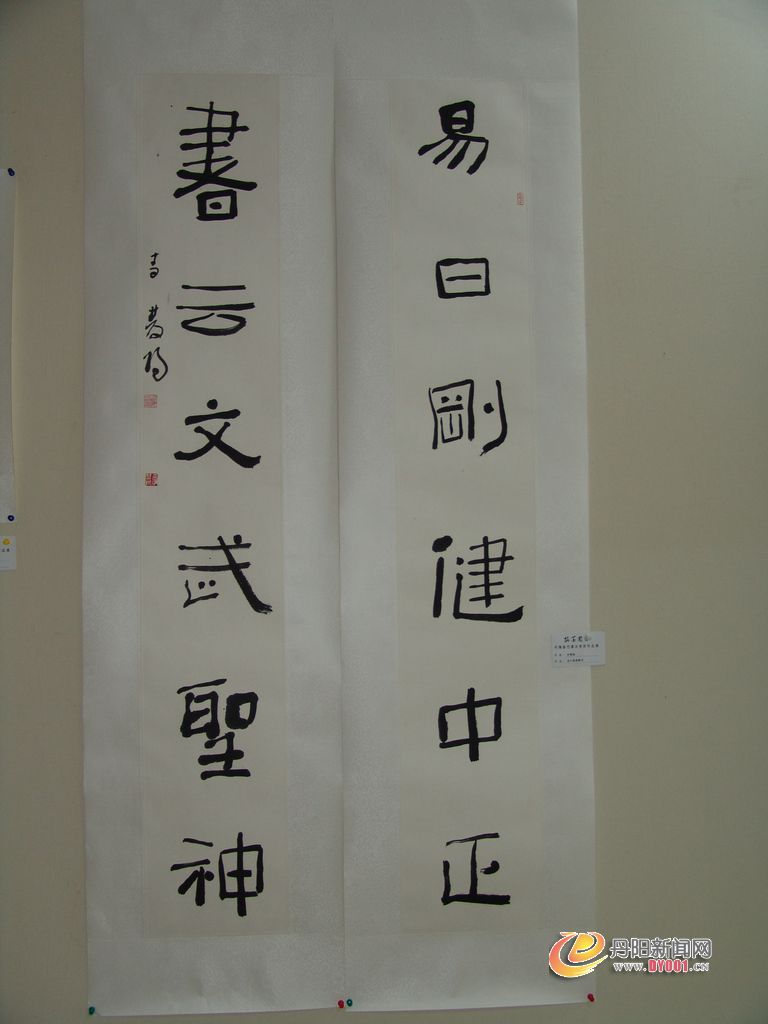 易曰剛健中正
書云文武聖神
丹阳新闻网
www.DY001.CN